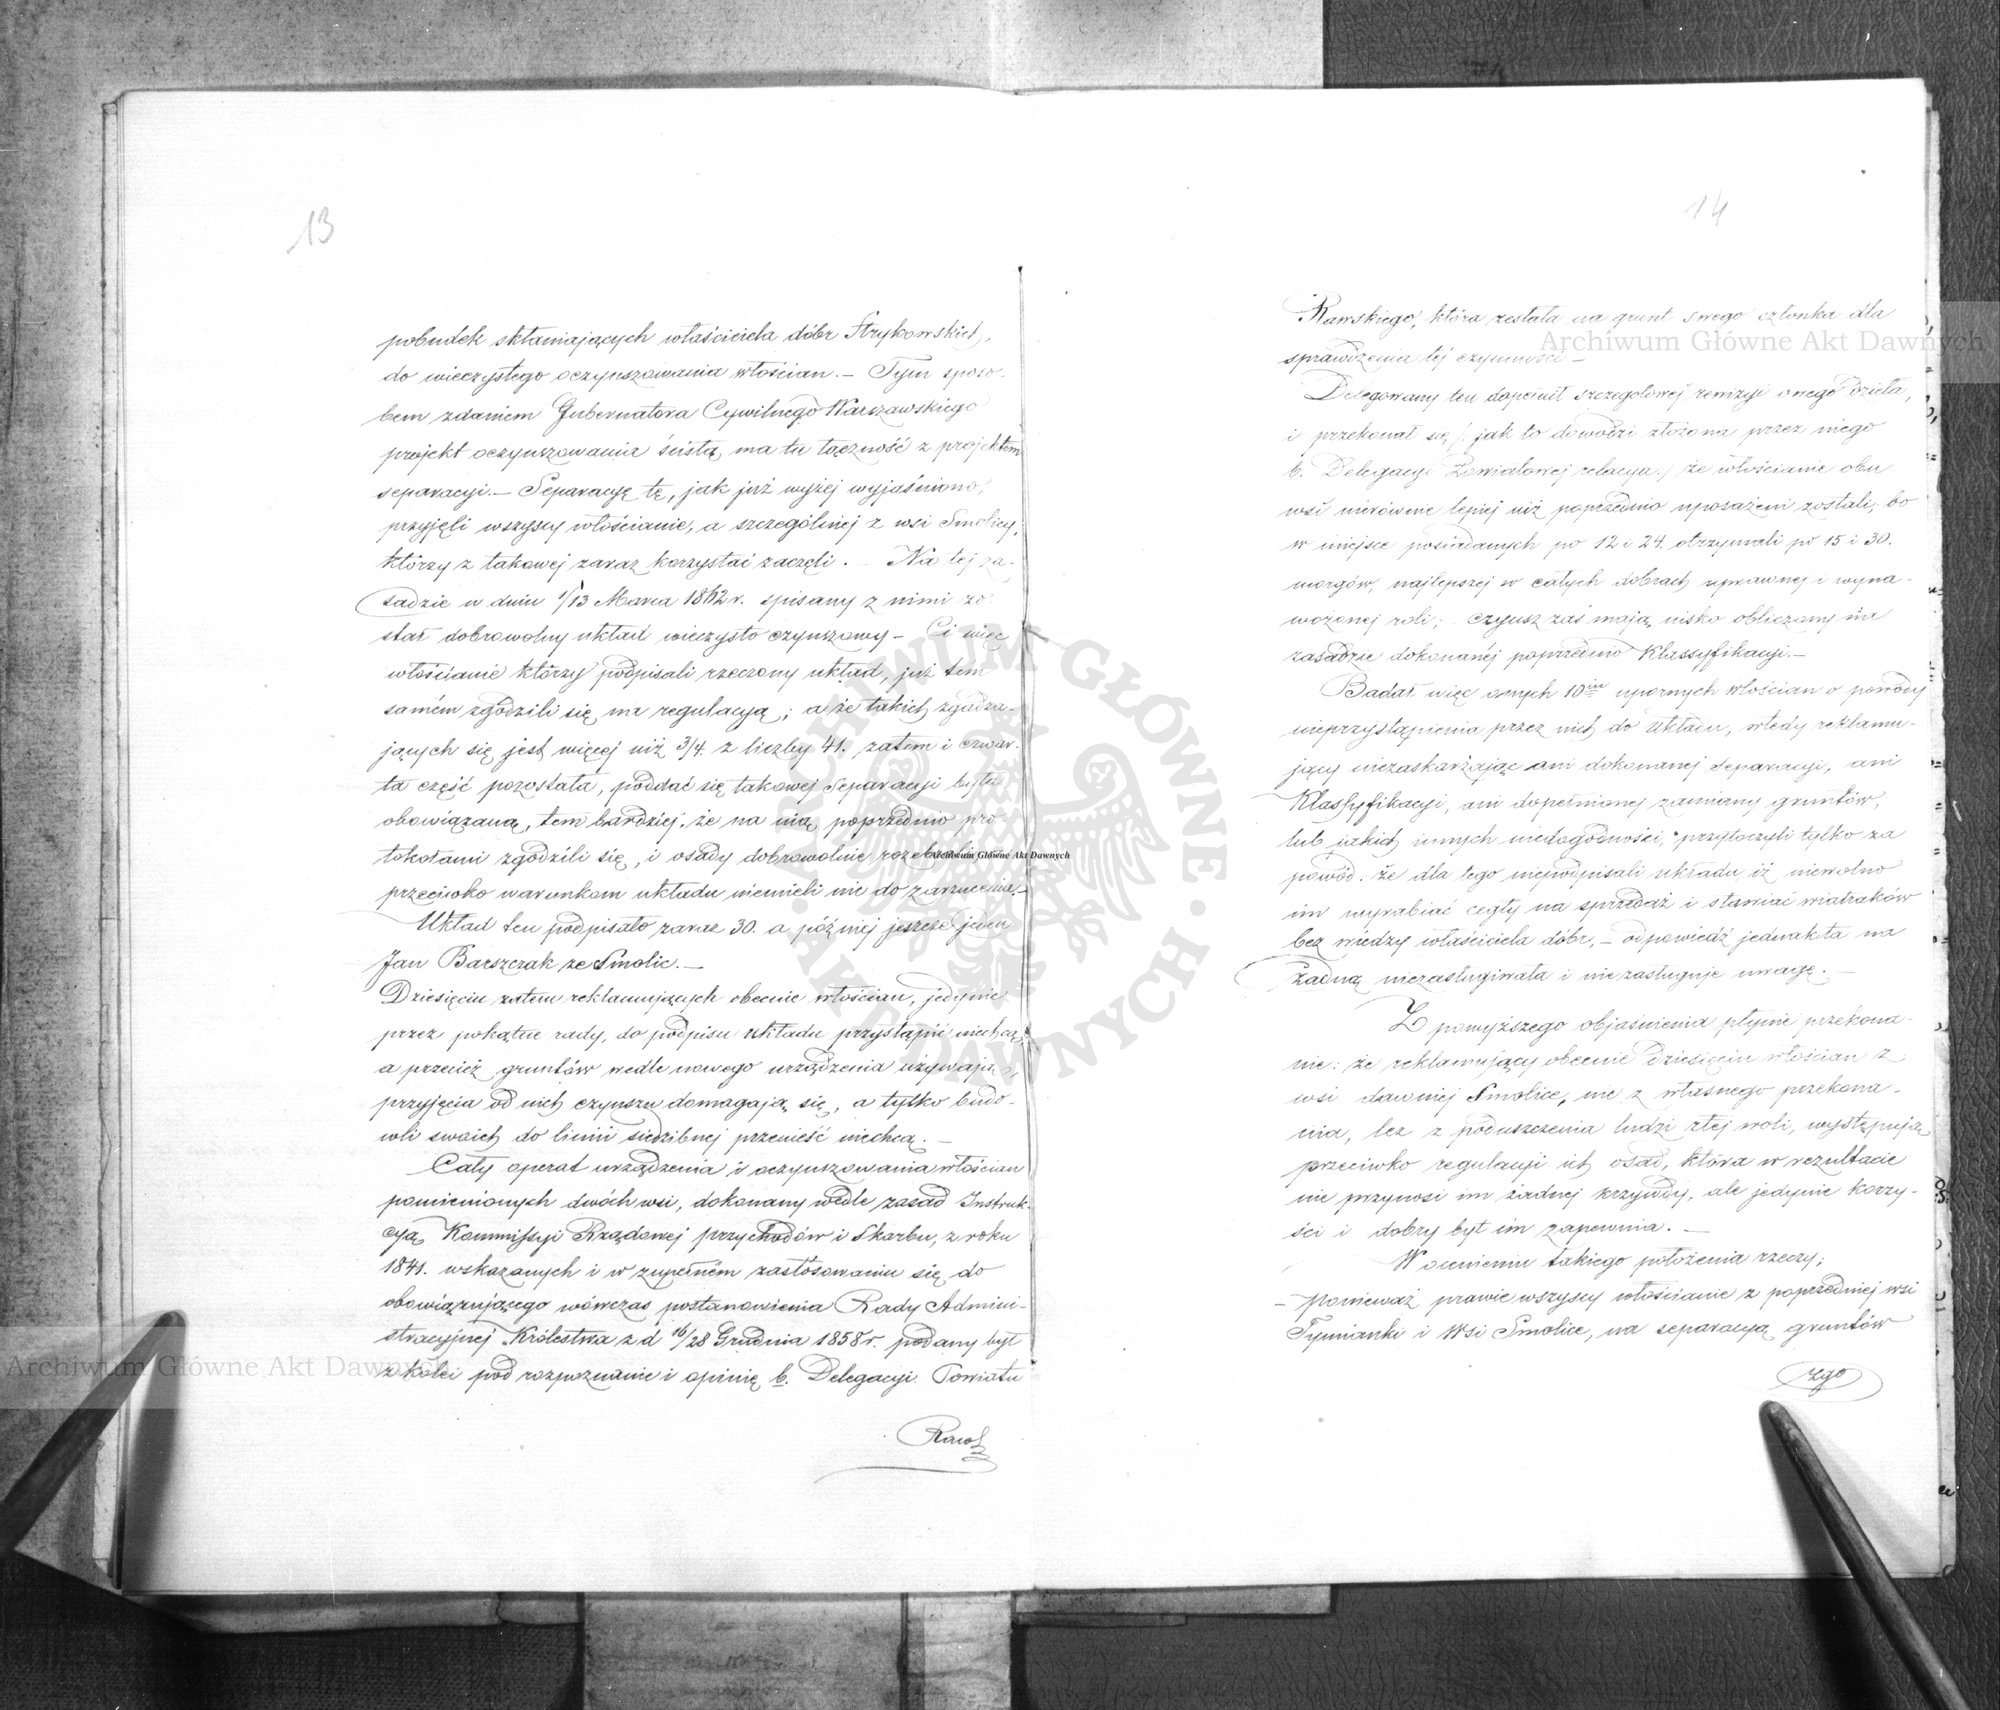 13
pobudek skłaniających właściciela dóbr Strykowskich,
do wieczystego oczynszowania włościan. — Tym sposo-
bem zdaniem Gubernatora Cywilnego Warszawskiego
projekt oczynszowania ścisłą ma tu łączność z projektem
separacyi. — Separacyę tę, jak już wyżej wyjaśniono,
przyjęli wszyscy włościanie, a szczególniej z wsi Smolicy,
którzy z takowej zaraz korzystać zaczęli. — Na tej za-
sadzie w dniu 1/13 Marca 1862 r. spisany z nimi zo-
stał dobrowolny układ wieczysto czynszowy — Ci więc
włościanie którzy podpisali rzeczony układ, już tém
samém zgodzili się na regulacyą; a że takich zgadza-
jących się jest więcej niż 3/4 z liczby 41. zatem i czwar-
ta część pozostała, poddać się takowej Separacyi była
obowiązaną, tem bardziej, że na nią poprzednio pro-
tokołami zgodzili się, i osady dobrowolnie rozebrali
przeciwko warunkom układu niemieli nic do zarzucenia. —
Układ ten podpisało zaraz 30. a później jeszcze jeden
Jan Barszczak ze Smolic. —
Dziesięciu zatem reklamujących obecnie włościan, jedynie
przez pokątne rady, do podpisu układu przystąpić niechcą,
a przecież gruntów wedle nowego urządzenia używają,
przyjęcia od nich czynszu domagają się, a tylko budo-
wli swoich do linii siedzibnej przenieść niechcą. —
Cały operat urządzenia i oczynszowania włościan
pomienionych dwóch wsi, dokonany wedle zasad Instruk-
cyą Kommissyi Rządowej przychodów i Skarbu, z roku
1841. wskazanych i w zupełném zastosowaniu się do
obowiązującego wówczas postanowienia Rady Admini-
stracyjnej Królestwa z d 16/28 Grudnia 1858 r. podany był
z kolei pod rozpoznanie i opinię b. Delegacyi Powiatu
Rawsk
14
Rawskiego, która zesłała na grunt swego członka dla
sprawdzenia tej czynności —
Delegowany ten dopełnił szczegółowej rewizyi onego dzieła,
i przekonał się /: jak to dowodzi złożona przez niego
b. Delegacyi Powiatowej relacya :/ że włościanie obu
wsi nierównie lepiej niż poprzednio uposażeni zostali, bo
w miejsce posiadanych po 12 i 24. otrzymali po 15 i 30.
morgów, najlepszej w całych dobrach uprawnej i wyna-
wożonej roli; czynsz zaś mają nisko obliczony na
zasadzie dokonanéj poprzednio Klassyfikacyi. —
Badał więc onych 10ciu upornych włościan o powody
nieprzystąpienia przez nich do układu, wtedy reklamu-
jący niezaskarżając ani dokonanej Separacyi, ani
Klassyfikacyi, ani dopełnionej zamiany gruntów,
lub jakich innych niedogodności, przytoczyli tylko za
powód. że dla tego niepodpisali układu iż niewolno
im wyrabiać cegły na sprzedaż i stawiać wiatraków
bez wiedzy właściciela dóbr. — odpowiedź jednak ta na
żadną niezasługiwała i nie zasługuje uwagę. —
Z powyższego objaśnienia płynie przekona-
nie: że reklamujący obecnie dziesięciu włościan z
wsi dawniej Smolice, nie z własnego przekona-
nia, lez z poduszczenia ludzi złej woli, występują
przeciwko regulacyi ich osad, która w rezultacie
nie przynosi im żadnej krzywdy, ale jedynie korzy-
ści i dobry byt im zapewnia. —
W ocenieniu takiego położenia rzeczy;
— Ponieważ prawie wszyscy włościanie z poprzedniej wsi
Tymianki i wsi Smolice, na separacyą gruntów
Archiwum Główne Akt Dawnych
Archiwum Główne Akt Dawnych
Archiwum Główne Akt Dawnych
ARCHIWUM GŁÓWNE · AKT DAWNYCH ·